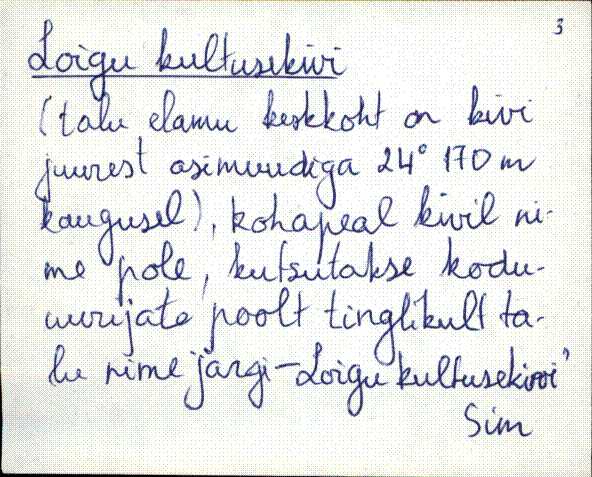 3
Loigu kultusekivi
(talu elamu keskkoht on kivi
juurest asimuudiga 24° 170 m
kaugusel), kohapeal kivil ni-
me pole, kutsutakse kodu-
uurijate poolt tinglikult ta-
lu nime järgi – Loigu kultusekivi
Sim